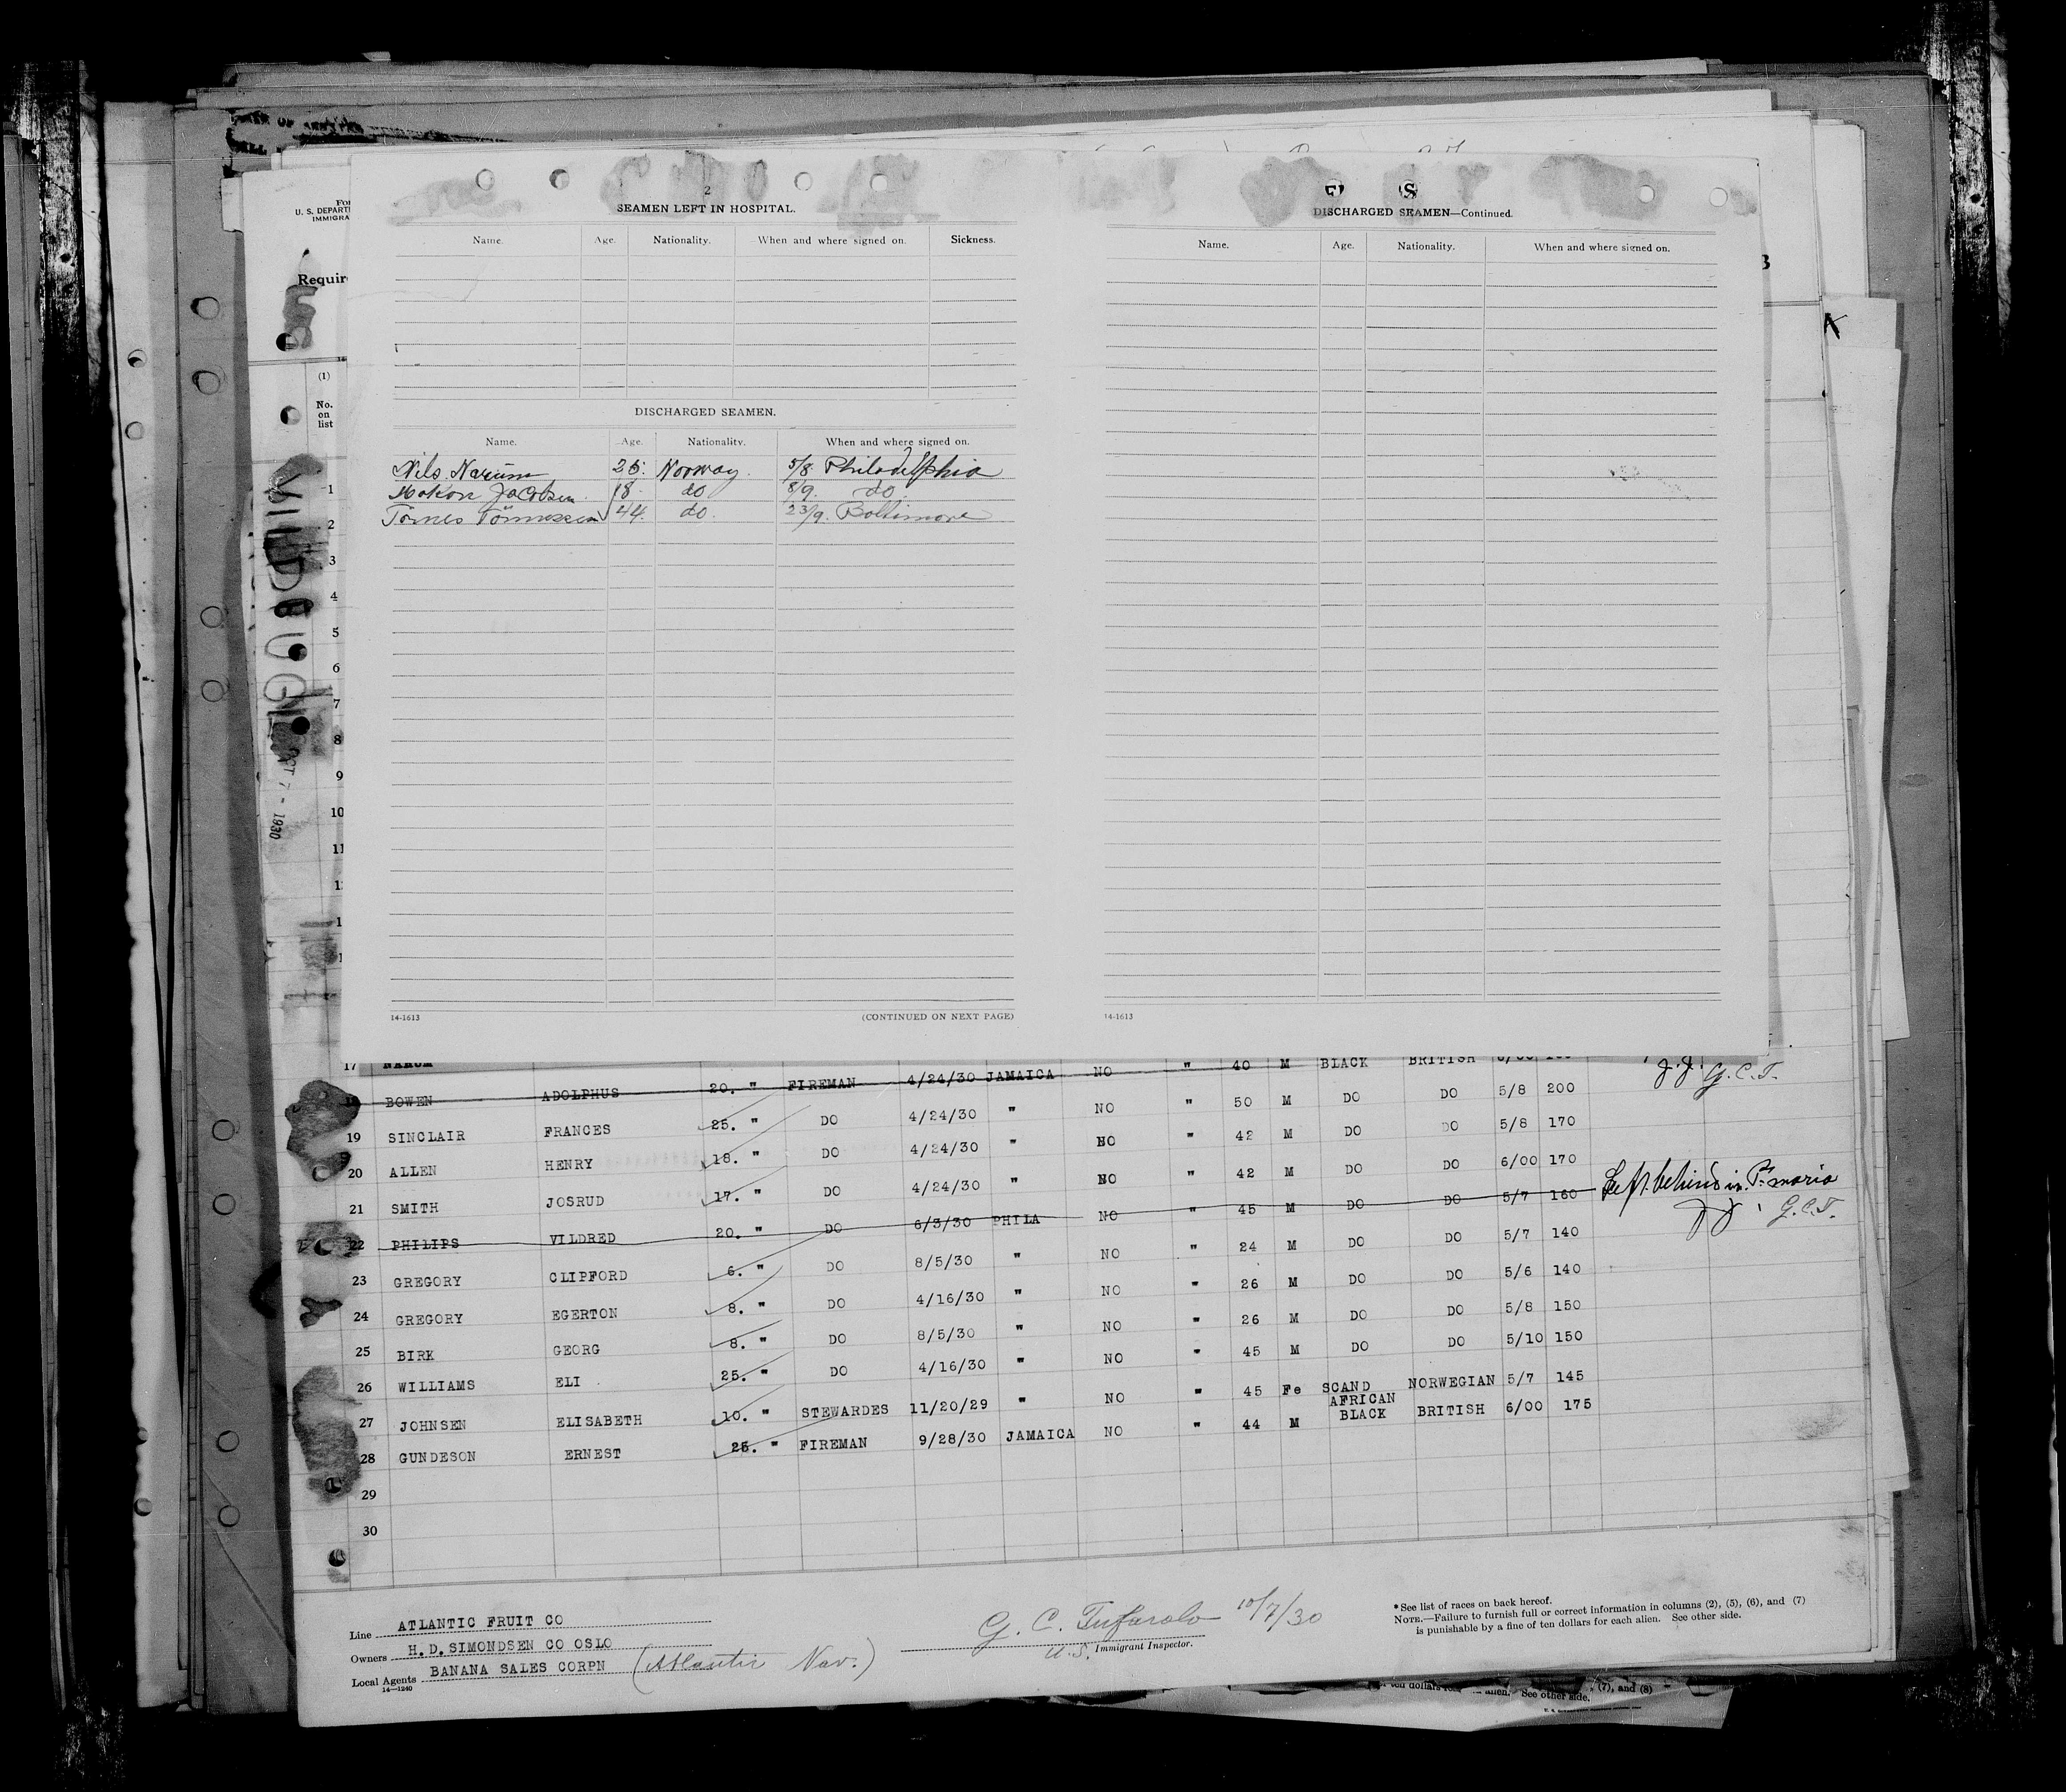 For
U. S. DEPART
IMMIGRA
Requir
(1)
No.
on
list
OCT 7 - 1930
2
SEAMEN LEFT IN HOSPITAL.
Name. Age. Nationality. When and where signed on. Sickness.
DISCHARGED SEAMEN.
Name. Age. Nationality. When and where signed on.
Nils Narum 25. Norway. 5/8 Philadelphia
Hakon Jacobsen 18. do 8/9. do
Tönnes Tönnessen 44. do. 23/9. Baltimore
14-1613 (CONTINUED ON NEXT PAGE)
DISCHARGED SEAMEN—Continued.
Name. Age. Nationality. When and where signed on.
14-1613
1
2
3
4
5
6
7
8
9
10
11
17 40 M BLACK BRITISH
BOWEN ADOLPHUS 20. " FIREMAN 4/24/30 JAMAICA NO " 50 M DO DO 5/8 200 J.J. G.C.T.
19 SINCLAIR FRANCES 25. " DO 4/24/30 " NO " 42 M DO DO 5/8 170
20 ALLEN HENRY 18. " DO 4/24/30 " NO " 42 M DO DO 6/00 170
21 SMITH JOSRUD 17. " DO 4/24/30 " NO " 45 M DO DO 5/7 160 Left behind in Pt. maria
22 PHILIPS VILDRED 20. " DO 6/3/30 PHILA NO " 24 M DO DO 5/7 140 JJ. G.C.T.
23 GREGORY CLIPFORD 6. " DO 8/5/30 " NO " 26 M DO DO 5/6 140
24 GREGORY EGERTON 8. " DO 4/16/30 " NO " 26 M DO DO 5/8 150
25 BIRK GEORG 8. " DO 8/5/30 " NO " 45 M DO DO 5/10 150
26 WILLIAMS ELI 25. " DO 4/16/30 " NO " 45 Fe SCAND NORWEGIAN 5/7 145
27 JOHNSEN ELISABETH 10. " STEWARDES 11/20/29 " NO " 44 M AFRICAN BLACK BRITISH 6/00 175
28 GUNDESON ERNEST 25. " FIREMAN 9/28/30 JAMAICA NO
29
30
Line ATLANTIC FRUIT CO
Owners H.D.SIMONDSEN CO OSLO
Local Agents BANANA SALES CORPN (Atlantic Nav.)
14—1240
G. C. Tufarolo 10/7/30
U.S. Immigrant Inspector.
*See list of races on back hereof.
NOTE.—Failure to furnish full or correct information in columns (2), (5), (6), and (7)
is punishable by a fine of ten dollars for each alien. See other side.
ten dollars alien. See other side. (7), and (8)